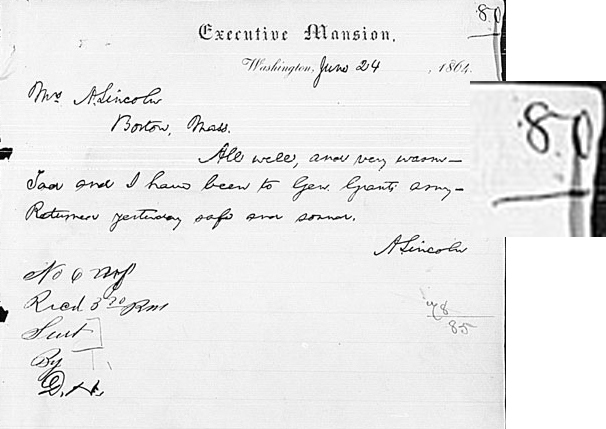 80
Executive Mansion,
Washington, June 24, 1864.
Mrs A. Lincoln
Boston, Mass.
All well, and very warm—
Tad and I have been to Gen. Grant's army—
Returned yesterday safe and sound.
A. Lincoln
No 6
Recd 3 30 Pm
Sent
By
D.H.
78
85
80